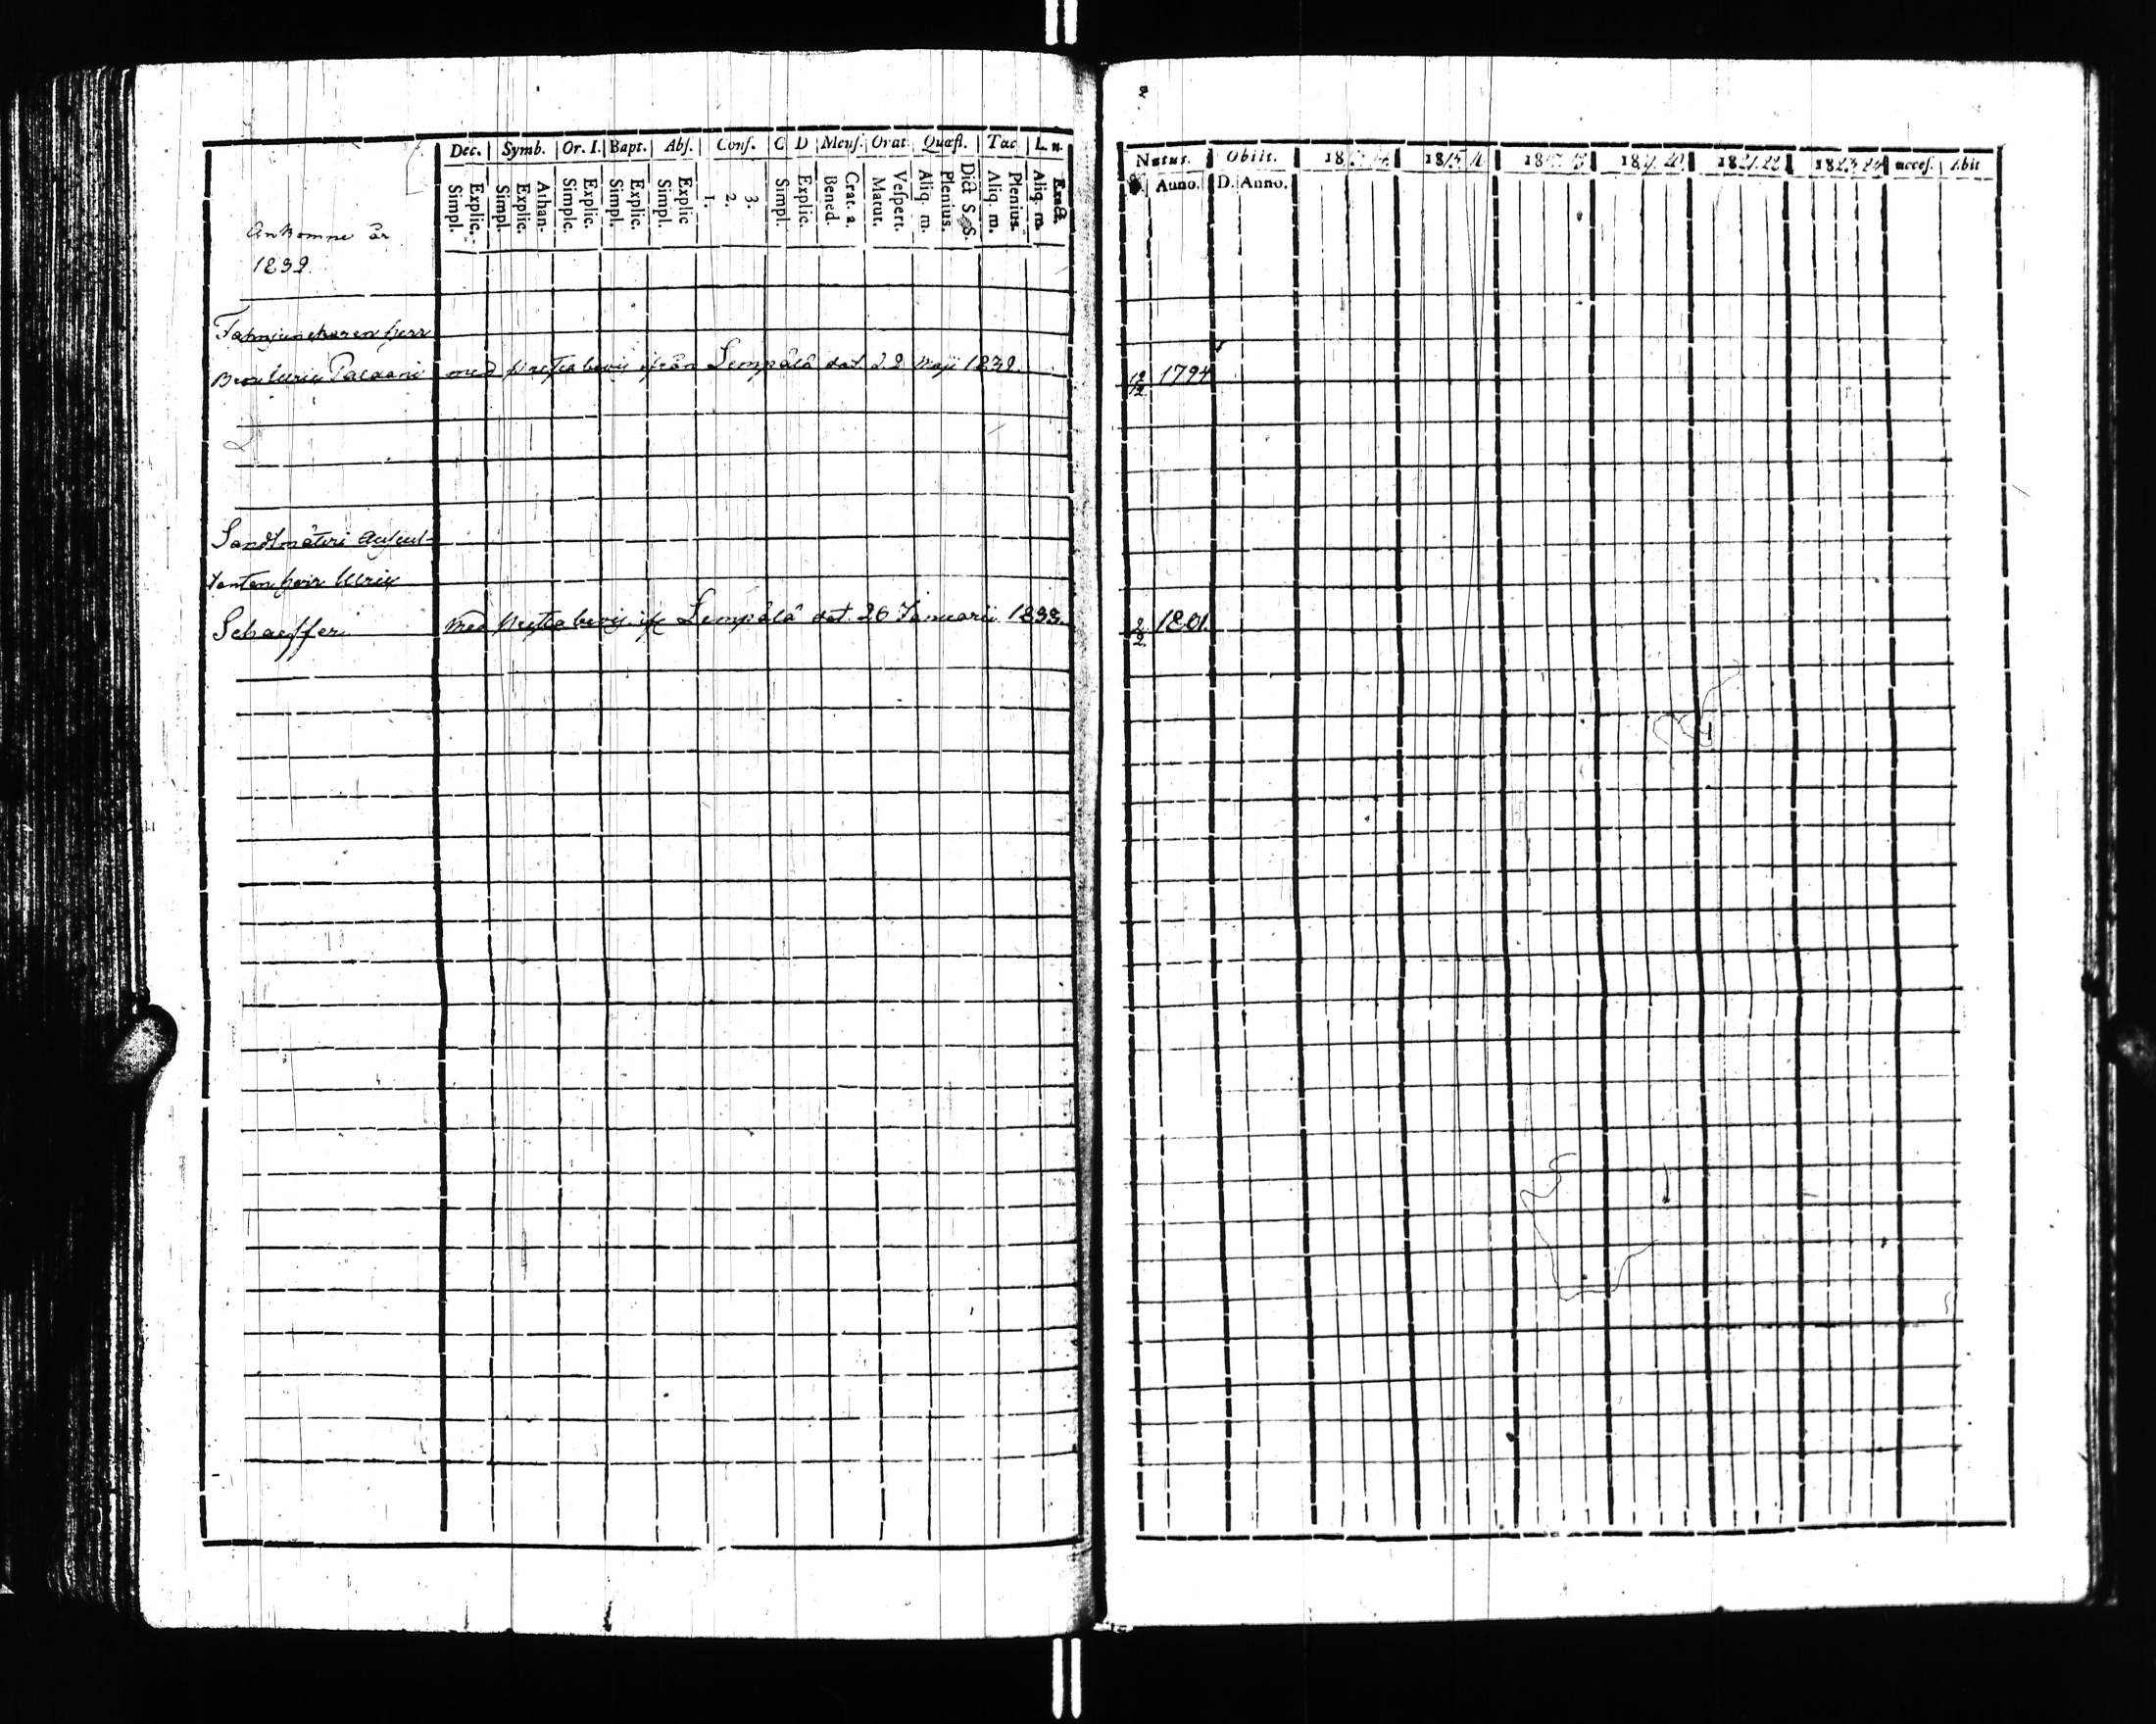 Dec. Symb. Or. I. Bapt. Abs. Conf. C D Mens. Orat. Quæst. Tac. L. n.
Simpl. Explic. Simpl. Explic. Athan. Simplc. Explic. Simpl. Explic. Simpl. Explic 1. 2. 3. Simpl. Explic. Bened. Grat. a. Matut. Vespert. Aliq. m. Plenius. Dict S. S. Aliq. m. Plenius. Aliq. m Exact.
Ankomne år
1832
Fahnjunckaren herr
Paldani med från Lempälä dat 22 Maji 1832
Landtmäteri Auscul-
tanten herr Ulric
Schaeffer med Lempälä dat. 26 Januarii 1833.
Natus. Obiit. 18 1815 18 18 1821.22 1823.24 acces. Abit
Anno. D. Anno.
12/12 1794
2/2 1801.